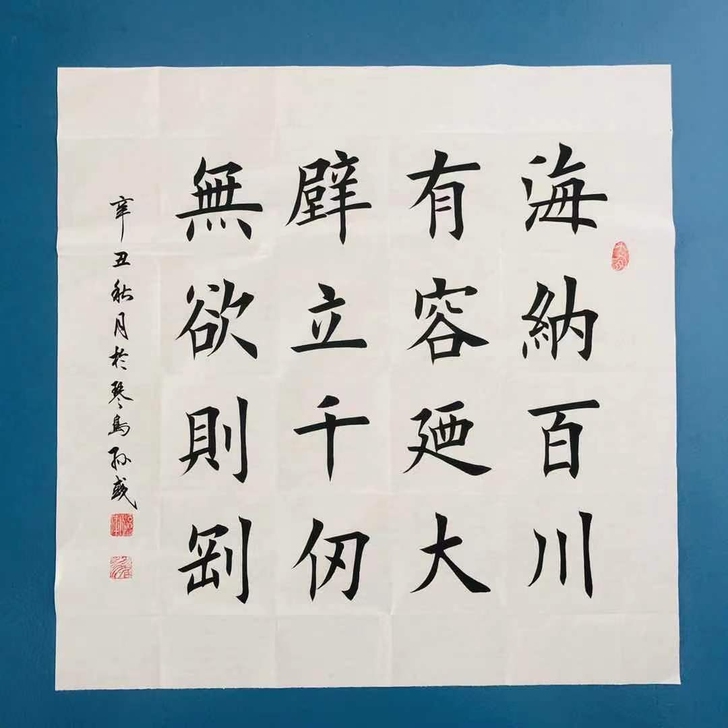 海納百川
有容廼大
壁立千仞
無欲則剛
辛丑秋月於琴島孫